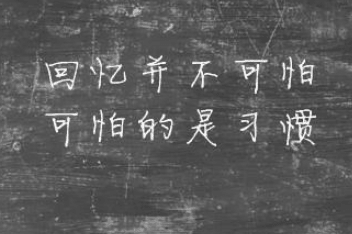 回忆并不可怕
可怕的是习惯